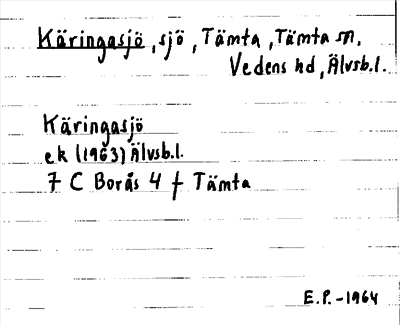 Käringasjö, sjö, Tämta, Tämta sn,
Vedens hd, Älvsb.l.
Käringasjö
ek (1963) Älvsb.l.
7 C Borås 4 f Tämta
E.P.-1964